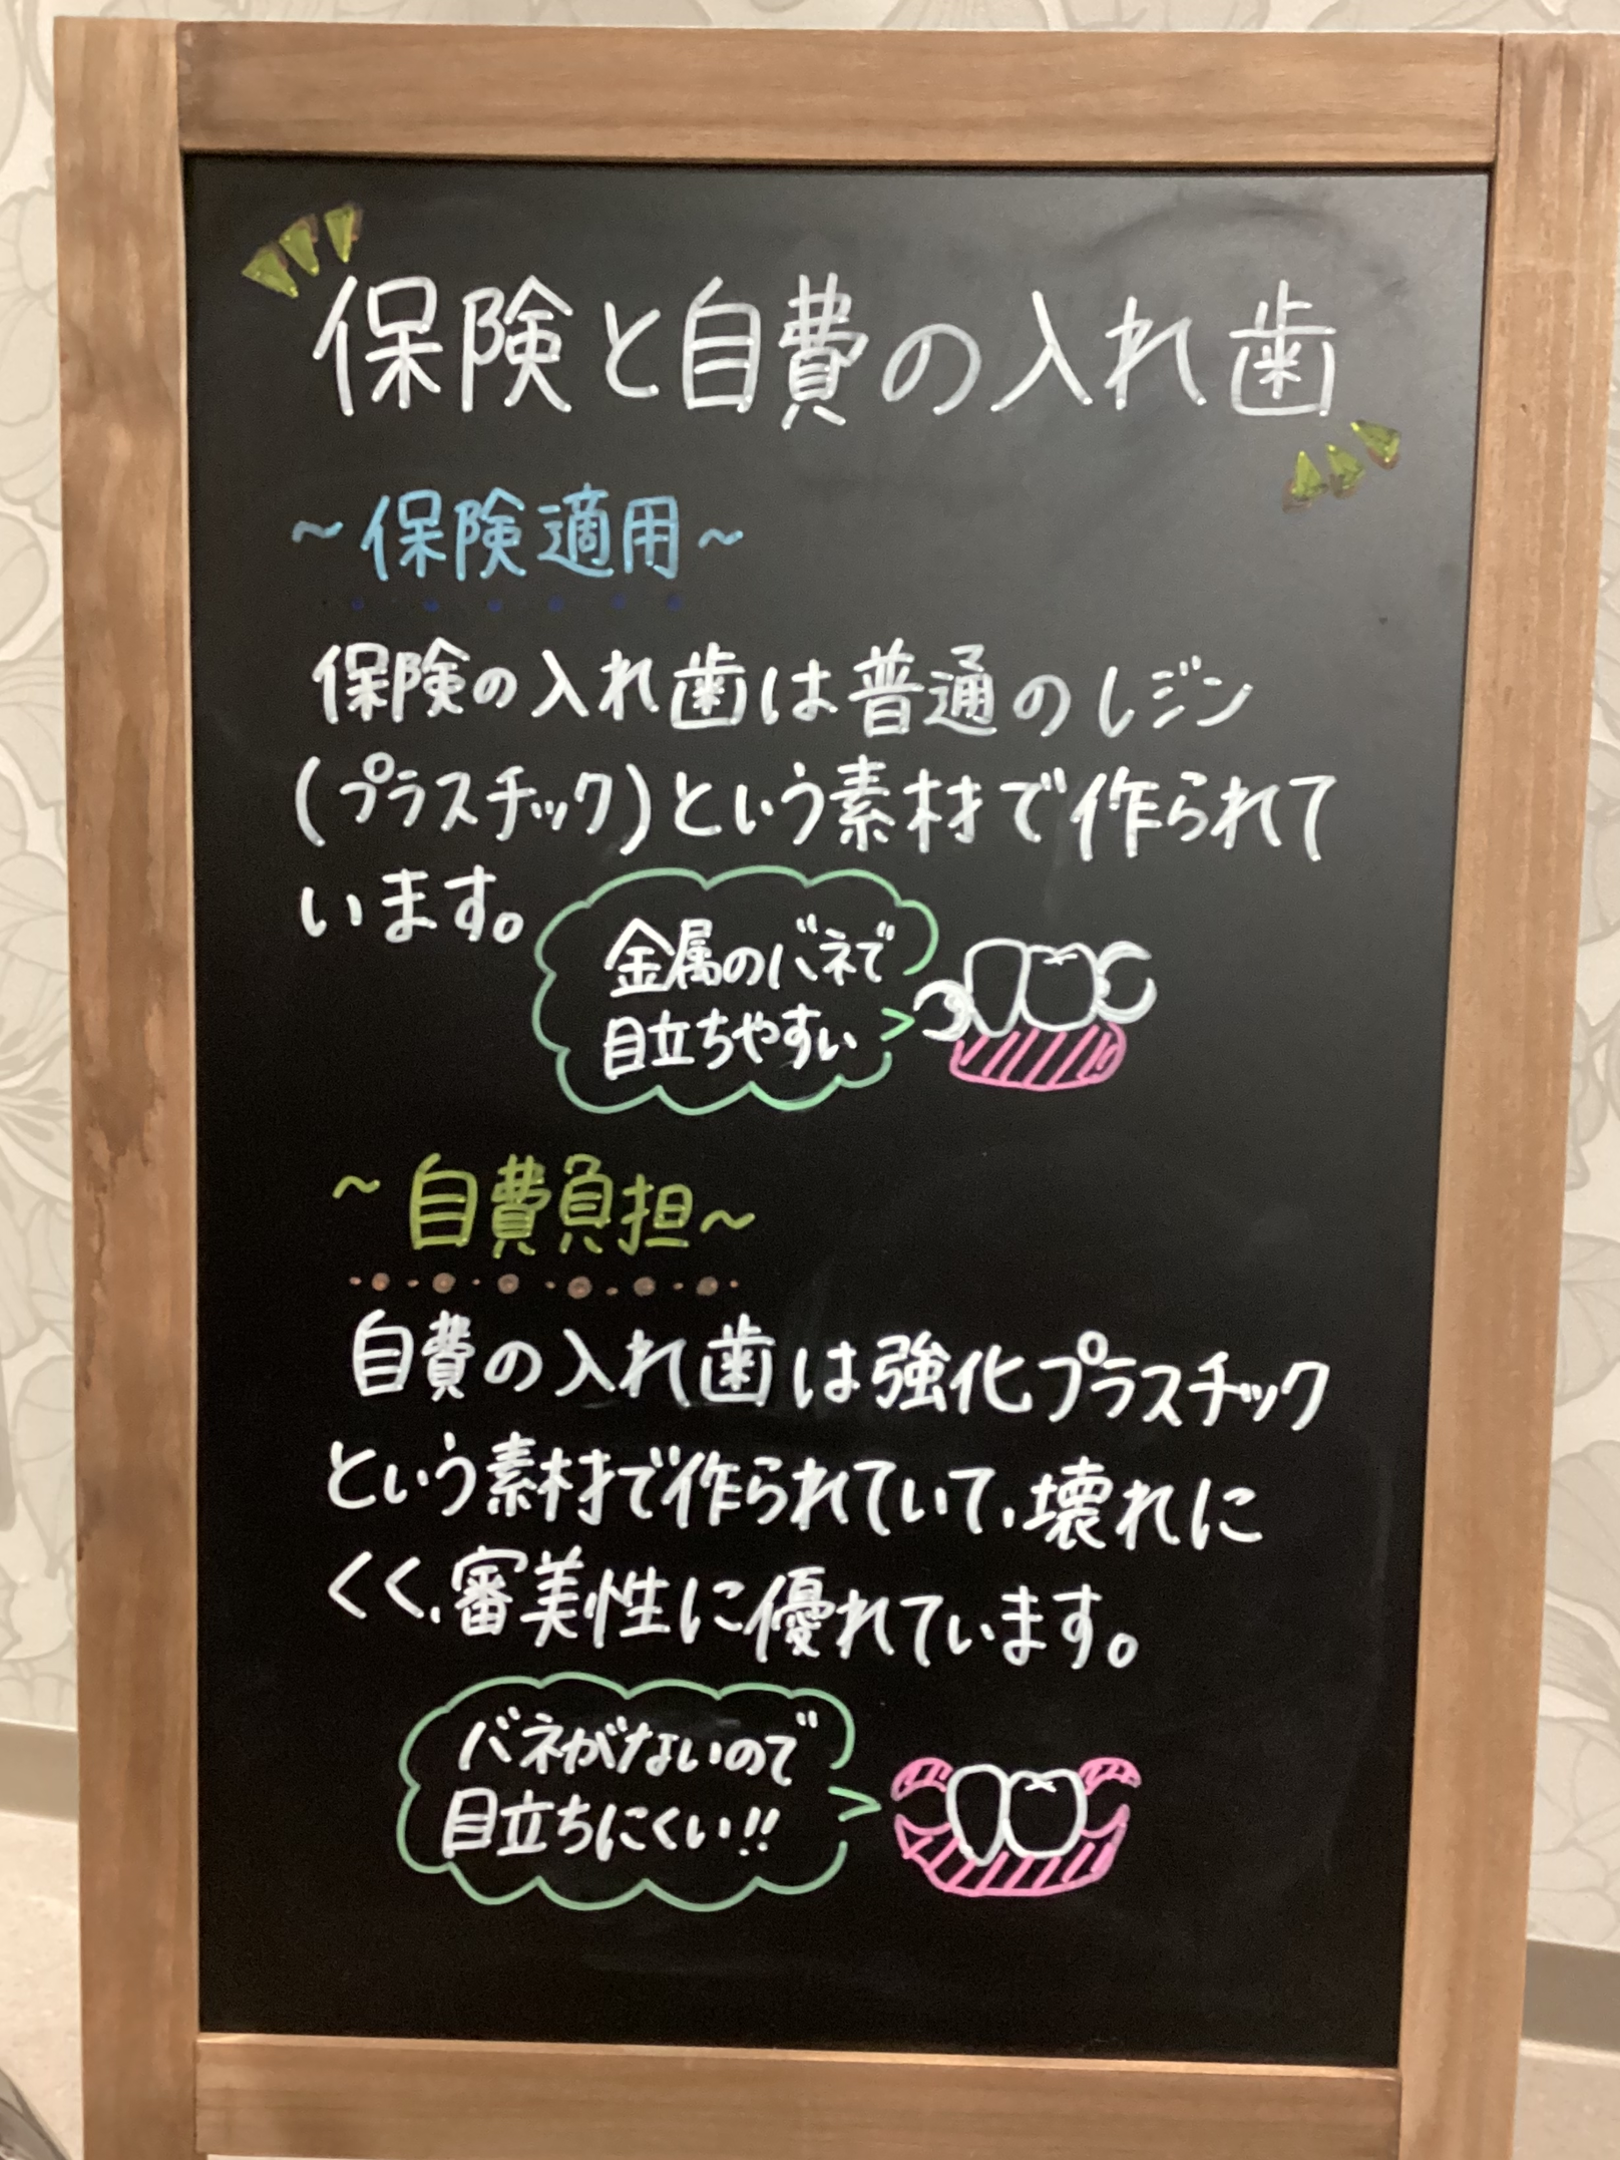 保険と自費の入れ歯
～保険適用～
保険の入れ歯は普通のレジン
(プラスチック)という素材で作られて
います。
金属のバネで
目立ちやすい
～自費負担～
自費の入れ歯は強化プラスチック
という素材で作られていて、壊れに
くく、審美性に優れています。
バネがないので
目立ちにくい!!